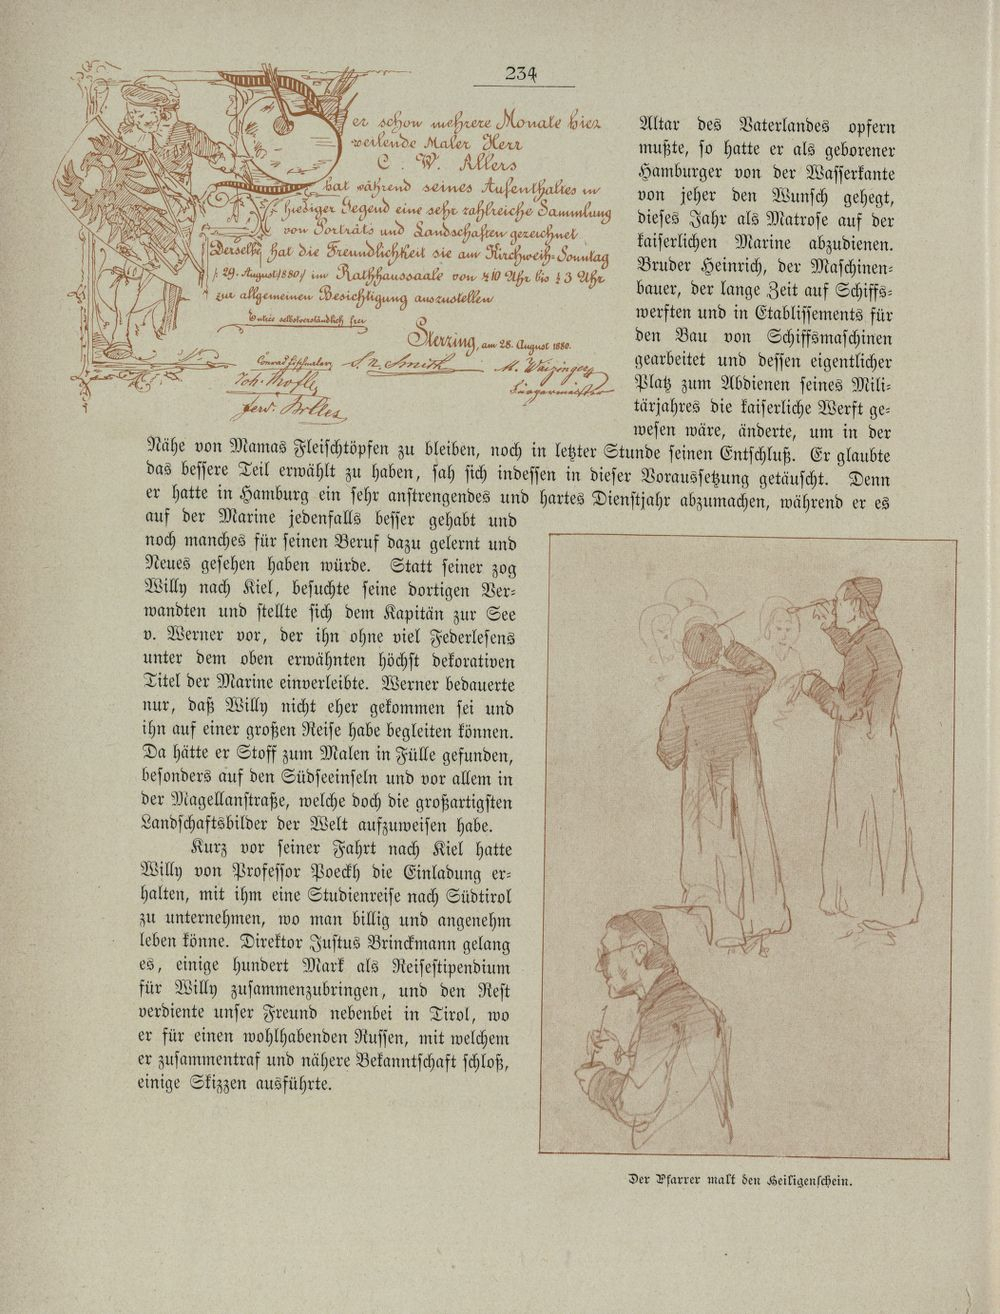 234
Der schon mehrere Monate hier
weilende Maler Herr
C. W. Allers
hat während seines Aufenthaltes in
hiesiger Gegend eine sehr zahlreiche Sammlung
von Porträts und Landschaften gezeichnet
Derselbe hat die Freundlichkeit sie am Kirchweih-Sonntag
/: 29. August 1880/ im Rathhaussaale von ½10 Uhr bis ½3 Uhr
zur allgemeinen Besichtigung auszustellen
Entrée selbstverständlich frei
Sterzing, am 28. August 1880.
Bürgermeister
Altar des Vaterlandes opfern
mußte, so hatte er als geborener
Hamburger von der Wasserkante
von jeher den Wunsch gehegt,
dieses Jahr als Matrose auf der
kaiserlichen Marine abzudienen.
Bruder Heinrich, der Maschinen-
bauer, der lange Zeit auf Schiffs-
werften und in Etablissements für
den Bau von Schiffsmaschinen
gearbeitet und dessen eigentlicher
Platz zum Abdienen seines Mili-
tärjahres die kaiserliche Werft ge-
wesen wäre, änderte, um in der
Nähe von Mamas Fleischtöpfen zu bleiben, noch in letzter Stunde seinen Entschluß. Er glaubte
das bessere Teil erwählt zu haben, sah sich indessen in dieser Voraussetzung getäuscht. Denn
er hatte in Hamburg ein sehr anstrengendes und hartes Dienstjahr abzumachen, während er es
auf der Marine jedenfalls besser gehabt und
noch manches für seinen Beruf dazu gelernt und
Neues gesehen haben würde. Statt seiner zog
Willy nach Kiel, besuchte seine dortigen Ver-
wandten und stellte sich dem Kapitän zur See
v. Werner vor, der ihn ohne viel Federlesens
unter dem oben erwähnten höchst dekorativen
Titel der Marine einverleibte. Werner bedauerte
nur, daß Willy nicht eher gekommen sei und
ihn auf einer großen Reise habe begleiten können.
Da hätte er Stoff zum Malen in Fülle gefunden,
besonders auf den Südseeinseln und vor allem in
der Magellanstraße, welche doch die großartigsten
Landschaftsbilder der Welt aufzuweisen habe.
Kurz vor seiner Fahrt nach Kiel hatte
Willy von Professor Poeckh die Einladung er-
halten, mit ihm eine Studienreise nach Südtirol
zu unternehmen, wo man billig und angenehm
leben könne. Direktor Justus Brinckmann gelang
es, einige hundert Mark als Reisestipendium
für Willy zusammenzubringen, und den Rest
verdiente unser Freund nebenbei in Tirol, wo
er für einen wohlhabenden Russen, mit welchem
er zusammentraf und nähere Bekanntschaft schloß,
einige Skizzen ausführte.
Der Pfarrer malt den Heiligenschein.